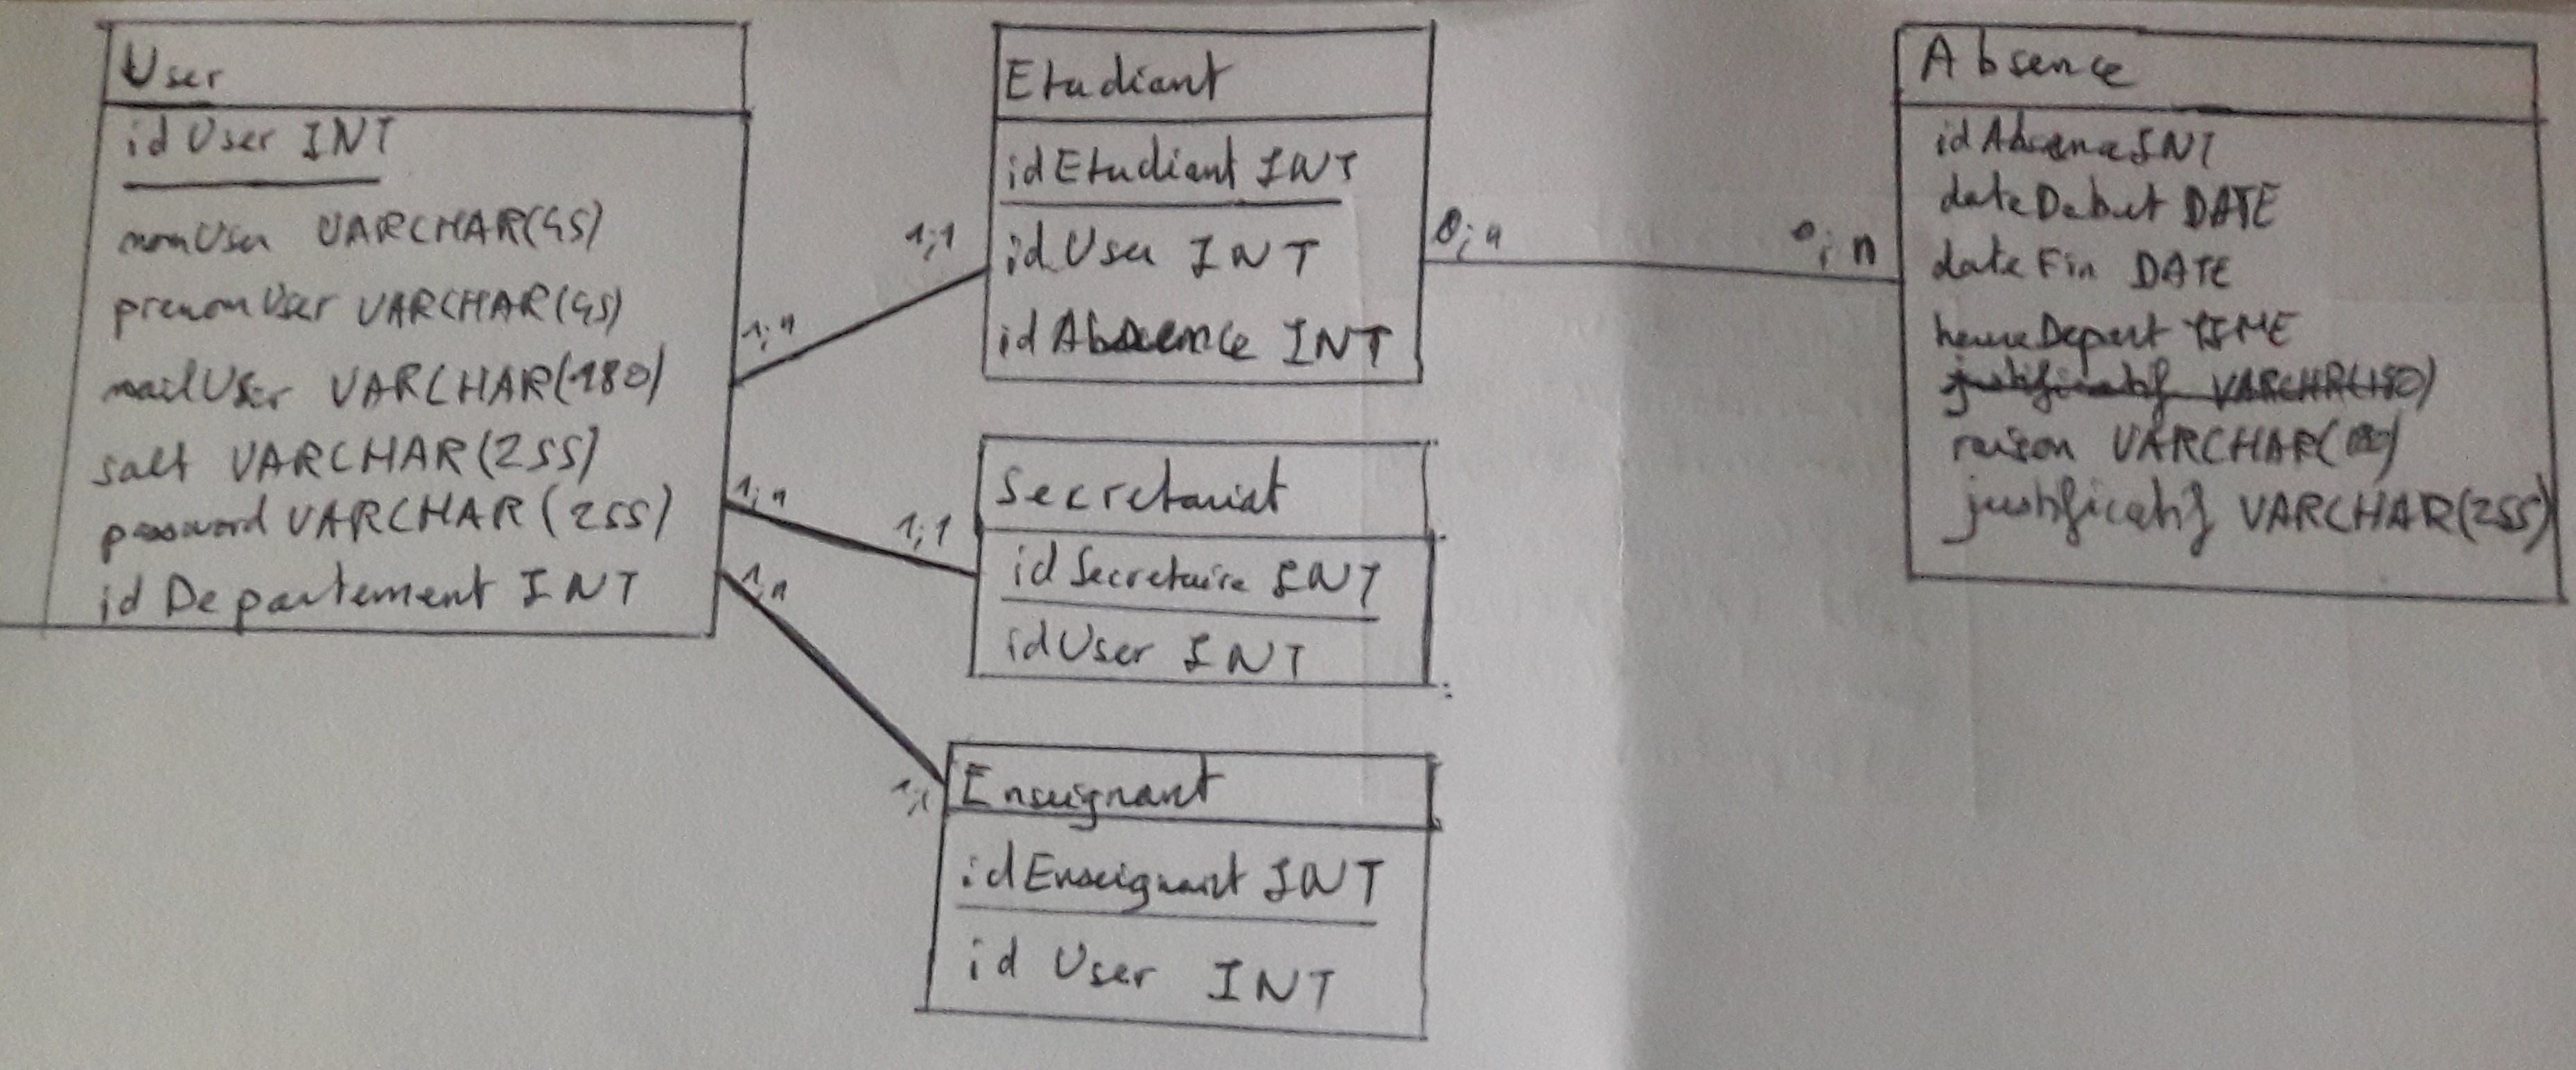 User
idUser INT
nomUser VARCHAR(45)
prenomUser VARCHAR(45)
mailUser VARCHAR(180)
salt VARCHAR(255)
password VARCHAR(255)
idDepartement INT
1;n
1;1
1;n
1;1
1;n
1;1
Etudiant
idEtudiant INT
idUser INT
idAbsence INT
0;n
0;n
Secretariat
idSecretaire INT
idUser INT
Enseignant
idEnseignant INT
id User INT
Absence
idAbsence INT
dateDebut DATE
dateFin DATE
heureDepart TIME
justificatif VARCHAR(180)
raison VARCHAR(180)
justificatif VARCHAR(255)